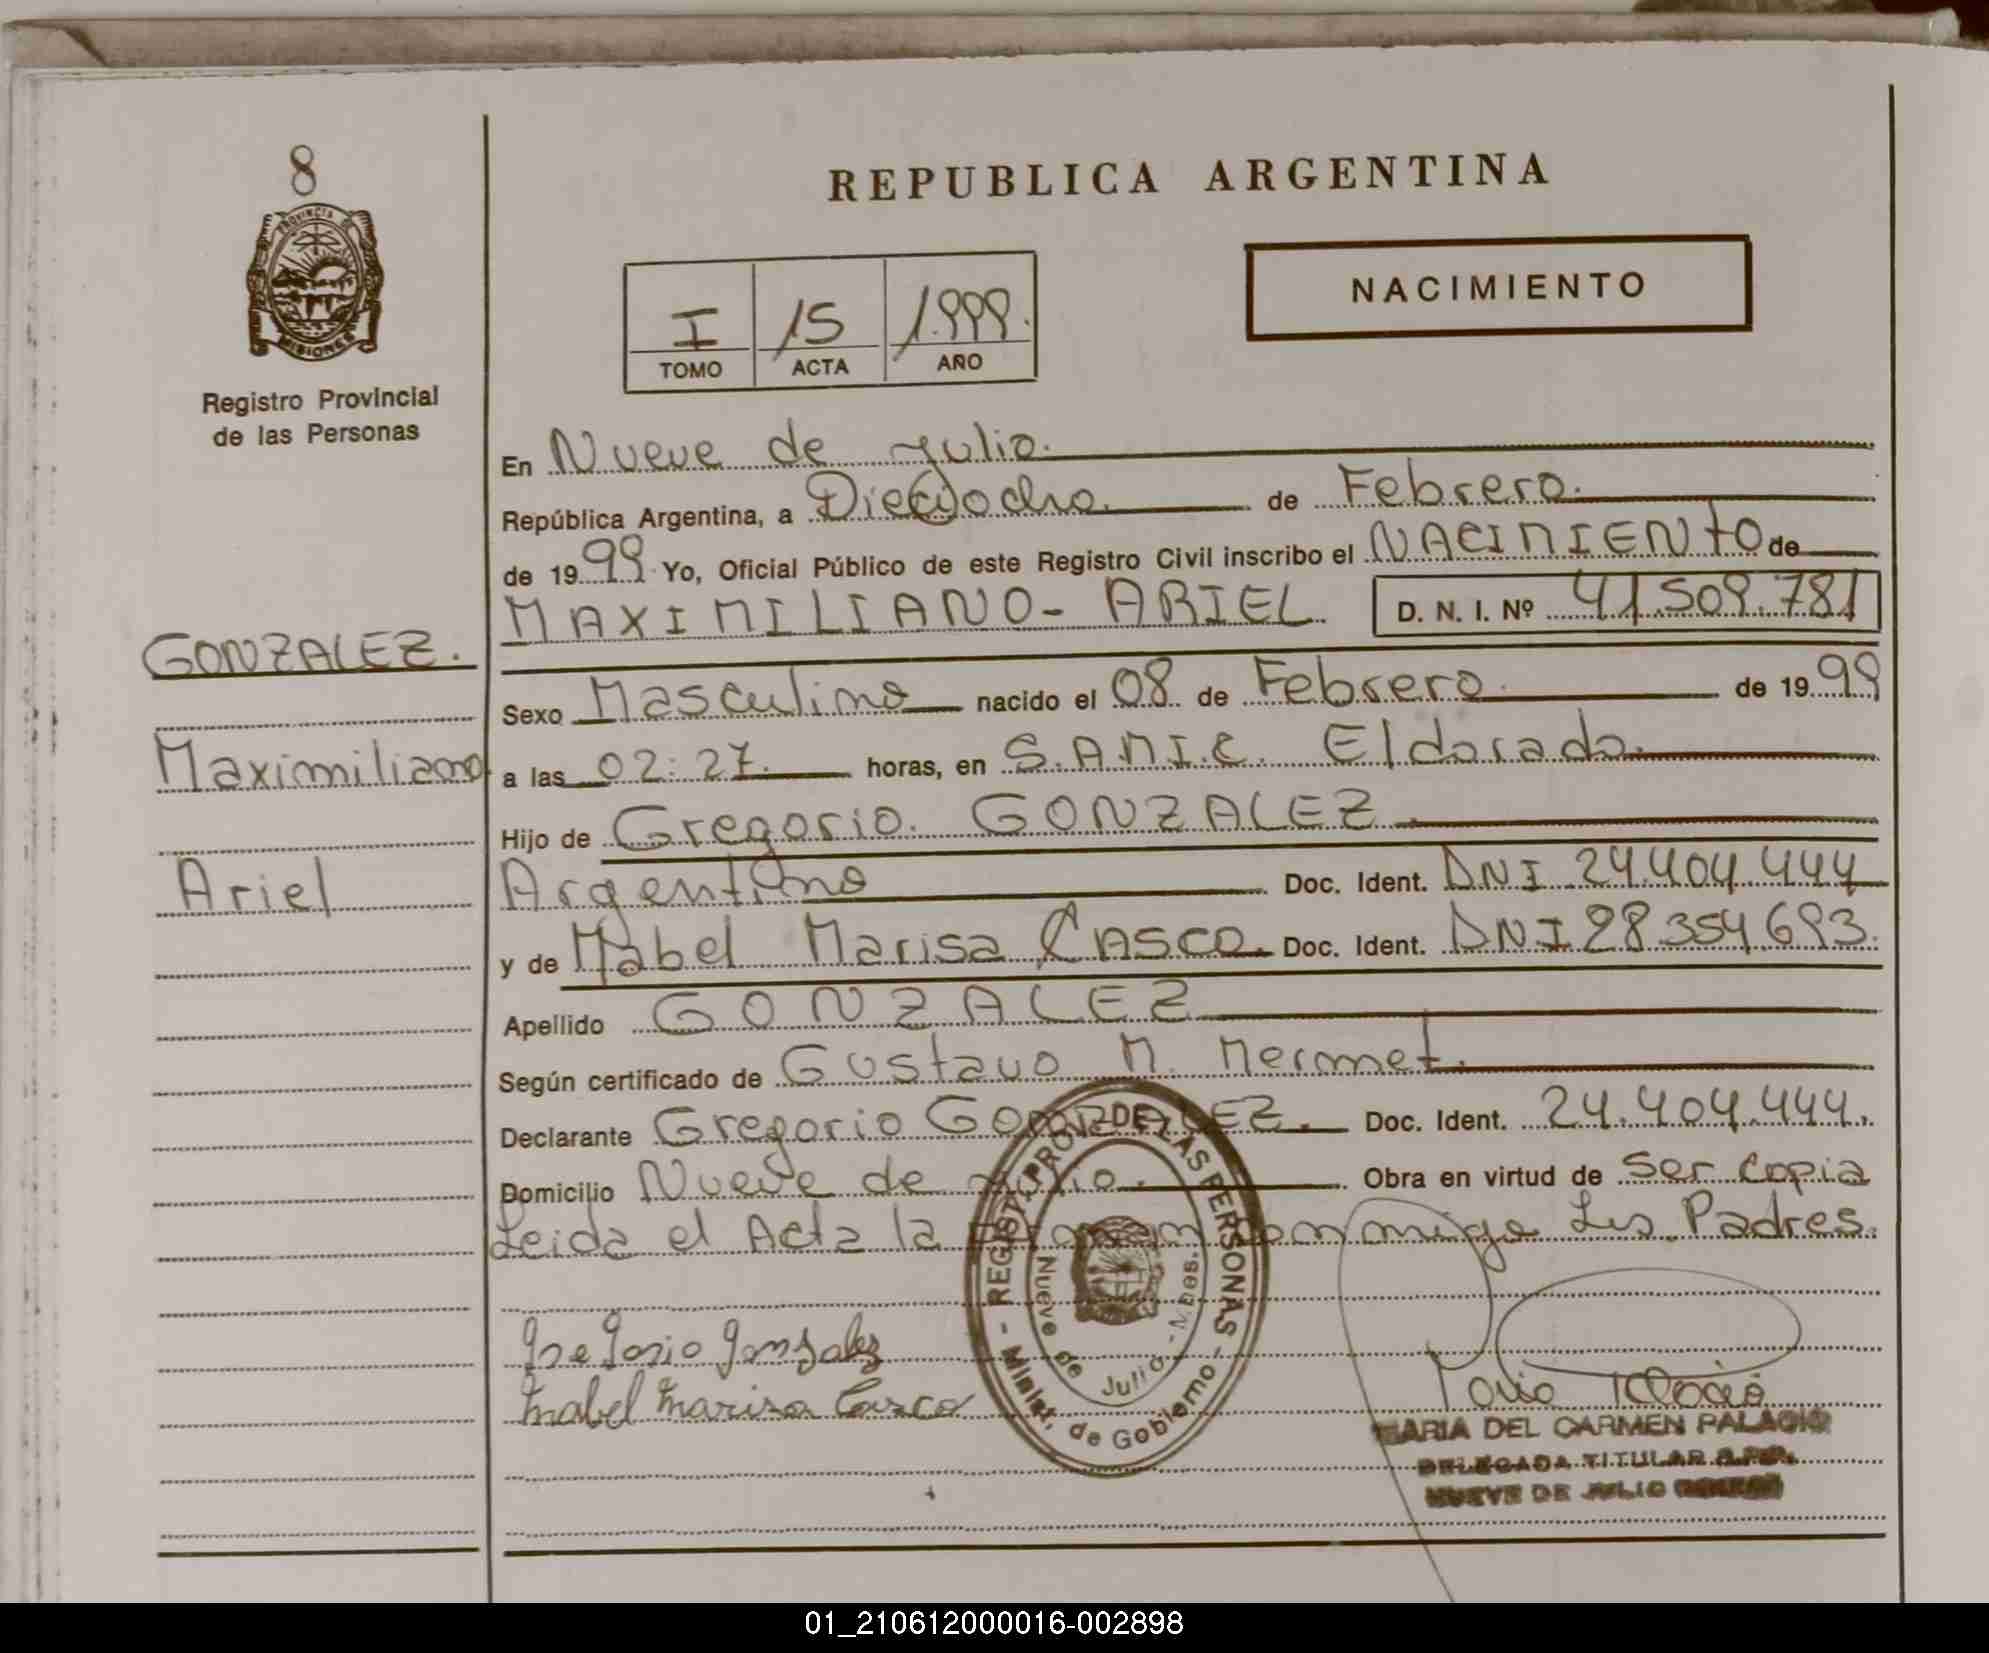 8
PROVINCIA DE
MISIONES
Registro Provincial
de las Personas
GONZALEZ.
Maximiliano
Ariel
REPUBLICA ARGENTINA
I 15 1.999.
TOMO ACTA AÑO
NACIMIENTO
En Nueve de Julio.
República Argentina, a Dieciocho de Febrero.
de 1999 Yo, Oficial Público de este Registro Civil inscribo el NACIMIENTO de
MAXIMILIANO - ARIEL D. N. I. Nº 41.509.781
Sexo Masculino nacido el 08 de Febrero de 1999
a las 02:27. horas, en S.A.M.I.C. Eldorado.
Hijo de Gregorio. GONZALEZ.
Argentino Doc. Ident. DNI 24.404.444
y de Mabel Marisa CASCO. Doc. Ident. DNI 28.354.693.
Apellido GONZALEZ
Según certificado de Gustavo M. Mermet.
Declarante Gregorio GONZALEZ. Doc. Ident. 24.404.444.
Domicilio Nueve de Julio. Obra en virtud de ser copia
Leida el Acta la Firman conmigo Los Padres.
REGIST. PROV. DE LAS PERSONAS
Minist. de Gobierno
Nueve de Julio - Mnes.
Gregorio Gonzalez
Mabel Marisa Casco
MARIA DEL CARMEN PALACIO
DELEGADA TITULAR R.P.P.
NUEVE DE JULIO
01_210612000016-002898